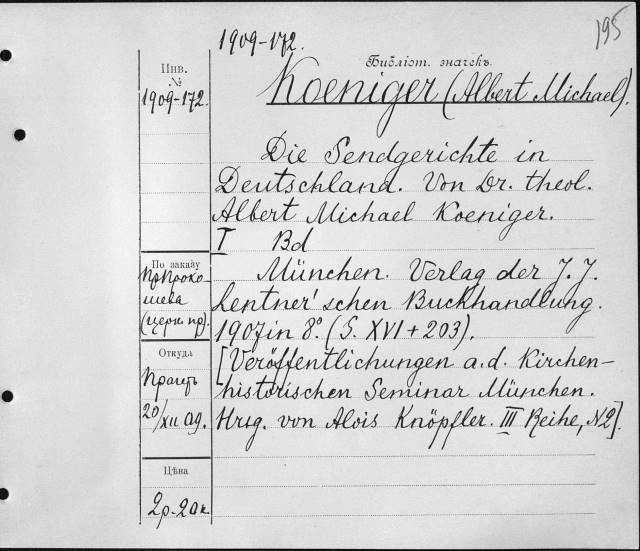 195
1909-172.
Библіот. значекъ.
Инв.
№
1909-172.
Koeniger (Albert Michael).
Die Sendgerichte in
Deutschland. Von Dr. theol.
Albert Michael Koeniger.
I Bd
По заказу
пр Проко-
шева
(церк. пр).
München. Verlag der J. J.
Lentner'schen Buckhandlung.
1907 in 8°. (S. XVI + 203).
Откуда
20/XII 09.
[Veröffentlichungen a. d. Kirchen-
historischen Seminar München.
Hrsg. von Alois Knöpfler. III Reihe, N2].
Цѣна
2р. 20к.